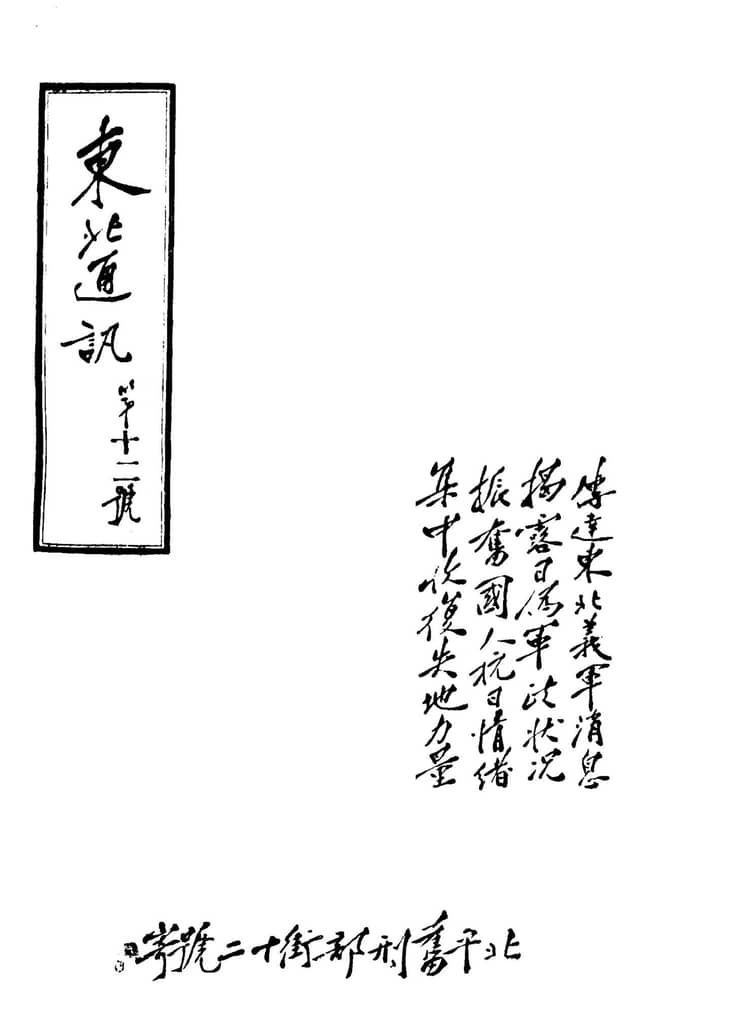 東北通訊
第十二號
傳達東北義軍消息
揭露日偽軍政狀況
振奮國人抗日情緒
集中收復失地力量
北平舊刑部街十二號寄